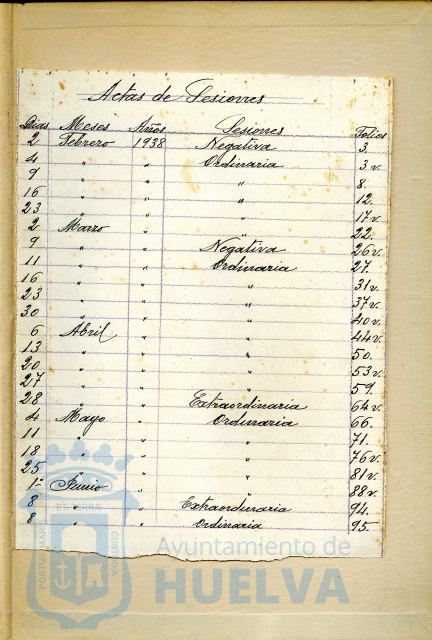 Actas de Sesiones
Dias Meses Años Sesiones Folios
2 Febrero 1938 Negativa 3.
4 " " Ordinaria 3 v.
9 " " " 8.
16 " " " 12.
23 " " " 17 v.
2 Marzo " " 22.
9 " " Negativa 26 v.
11 " " Ordinaria 27.
16 " " " 31 v.
23 " " " 37 v.
30 " " " 40 v.
6 Abril " " 44 v.
13 " " " 50.
20 " " " 53 v.
27 " " " 59.
28 " " Extraordinaria 64 v.
4 Mayo " Ordinaria 66.
11 " " " 71.
18 " " " 76 v.
25 " " " 81 v.
1º Junio " " 88 v.
8 " " Extraordinaria 94.
8 " " Ordinaria 95.
Ayuntamiento de
HUELVA